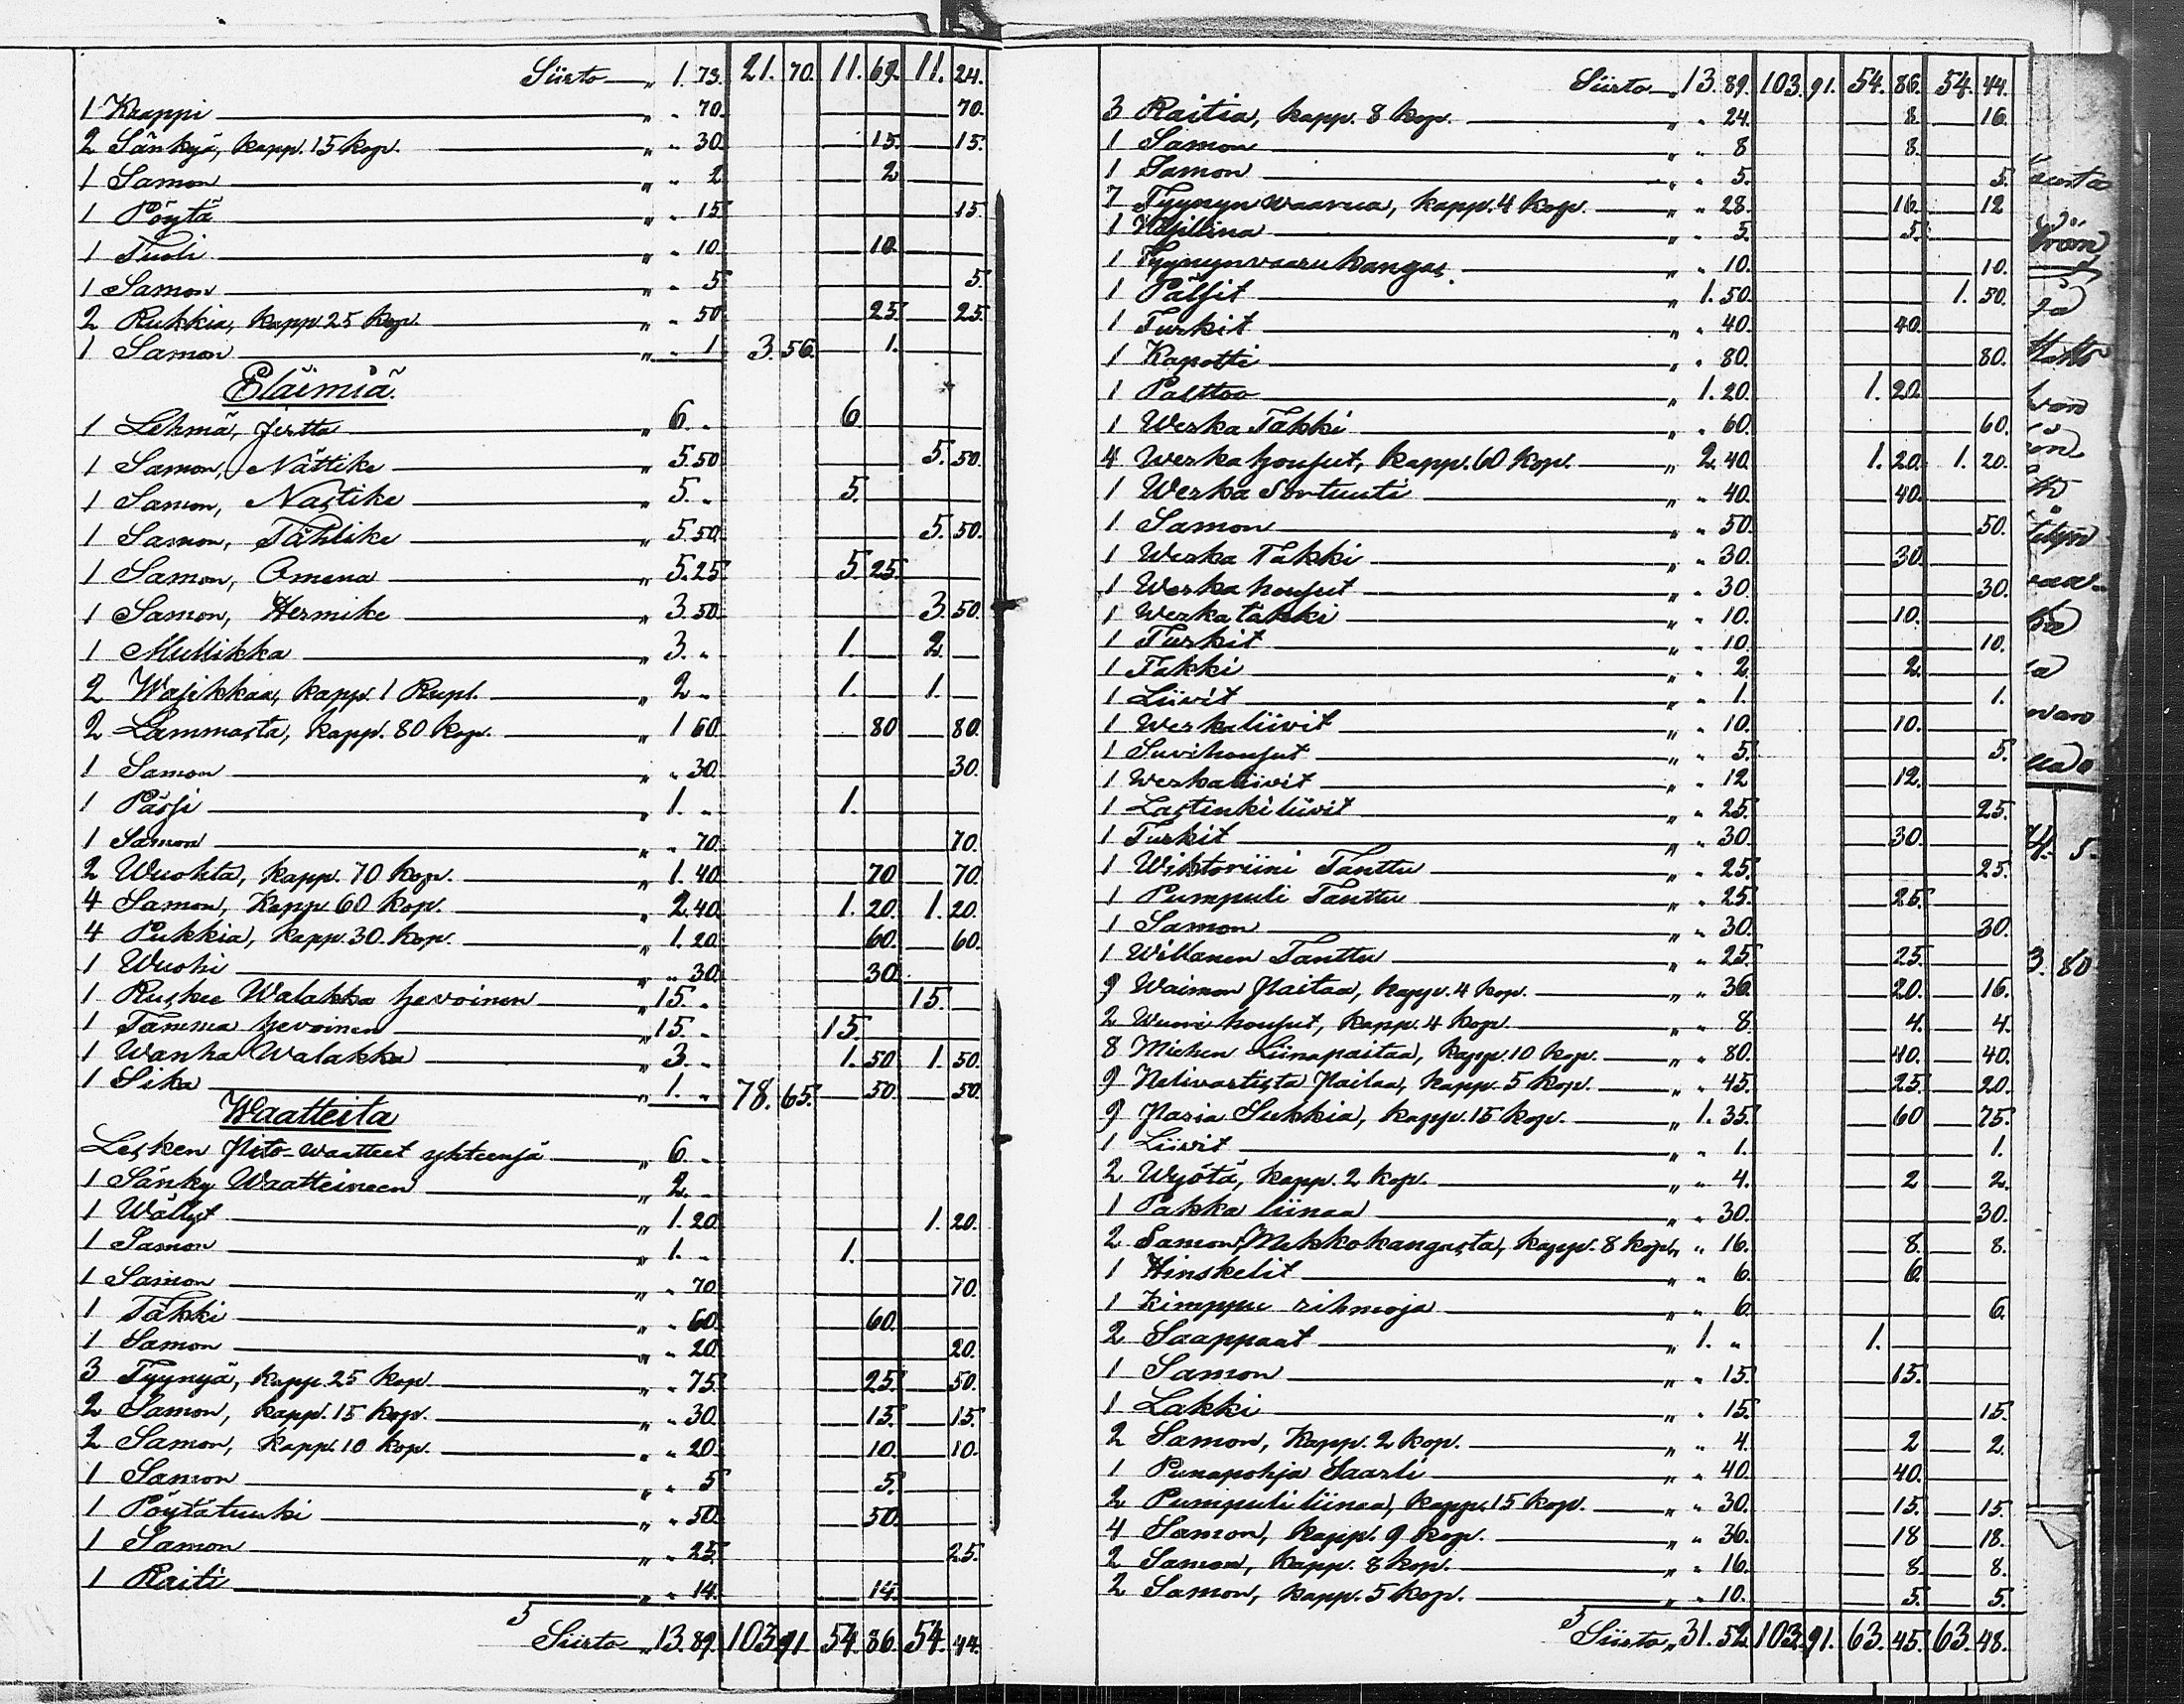 Siirto „ 1. 73. 21. 70. 11. 69. 11. 24.
1 Kaappi „ „ 70. 70.
2 Sänkyä, kapp. 15 kop. „ „ 30. 15. 15.
1 Samon „ „ 2 2
1 Pöytä „ „ 15 15.
1 Tuoli „ „ 10. 10.
1 Samon „ „ 5 5.
2 Rukkia, kapp. 25 kop. „ „ 50 25. 25.
1 Samon „ „ 1. 3. 56. 1.
Eläimiä.
1 Lehmä, Jertta „ 6. „ 6
1 Samon, Nättike „ 5. 50 5. 50.
1 Samon, Nastike „ 5. „ 5.
1 Samon, Tähtike „ 5. 50. 5. 50.
1 Samon, Omena „ 5. 25 5. 25.
1 Samon, Hermike „ 3. 50. 3. 50.
1 Mullikka „ 3. „ 1. 2.
2 Wasikkaa, kapp. 1 Rupl. „ 2 „ 1. 1.
2 Lammasta, kapp. 80 kop. „ 1 60. 80 80.
1 Samon „ „ 30. 30.
1 Pässi „ 1. „ 1.
1 Samon „ „ 70. 70.
2 Wuohta, kapp. 70 kop. „ 1. 40. 70 70.
4 Samon, kapp 60 kop. „ 2. 40. 1. 20. 1. 20.
4 Pukkia, kapp. 30. kop. „ 1. 20. 60. 60.
1 Wuohi „ „ 30. 30.
1 Ruskee Walakka hevoinen „ 15. „ 15.
1 Tamma hevoinen „ 15. „ 15.
1 Wanha Walakka „ 3. „ 1. 50 1. 50.
1 Sika „ 1. „ 78. 65. 50. 50.
Waatteita
Lesken Pito-waatteet yhteensä „ 6. „
1 Sänky Waatteineen „ 2. „
1 Wällyt „ 1. 20. 1. 20.
1 Samon „ 1. „ 1.
1 Samon „ „ 70. 70.
1 Täkki „ „ 60. 60.
1 Samon „ „ 20. 20.
3 Tyynyä, kapp. 25 kop „ „ 75. 25. 50.
2 Samon, kapp. 15 kop. „ „ 30. 15. 15.
2 Samon, kapp. 10 kop. „ „ 20. 10. 10.
1 Samon „ „ 5 5.
1 Pöytätuuki „ „ 50. 50.
1 Samon „ „ 25. 25.
1 Raiti „ „ 14. 14.
Siirto „ 13. 89. 103. 91. 54. 86. 54. 44.
Siirto „ 13. 89. 103. 91. 54. 86. 54. 44.
3 Raitia, kapp. 8 kop. „ „ 24. 8. 16.
1 Samon „ „ 8 8.
1 Samon „ „ 5. 5.
7 Tyynyn waarua, kapp. 4 kop. „ „ 28. 16. 12
1 „ „ 5. 5.
1 Tyynynvaaru kangas „ „ 10. 10.
1 Pälsit „ 1. 50. 1. 50.
1 Turkit „ „ 40. 40.
1 Kapotti „ „ 80. 80.
1 Palttoo „ 1. 20. 1. 20.
1 Werka Takki „ „ 60. 60.
4 Werkahousut, kapp. 60 kop. „ 2. 40. 1. 20. 1. 20.
1 Werka Sortuuti „ „ 40. 40.
1 Samon „ „ 50. 50.
1 Werka Takki „ „ 30. 30.
1 Werka housut „ „ 30 30.
1 Werkatakki „ „ 10. 10.
1 Turkit „ „ 10. 10.
1 Takki „ „ 2. 2.
1 Liivit „ „ 1. 1.
1 Werkaliivit „ „ 10. 10.
1 Suvihousut „ „ 5. 5.
1 Werkaliivit „ „ 12 12.
1 Lastinkiliivit „ „ 25. 25.
1 Turkit „ „ 30. 30.
1 Wihtoriini Tanttu „ „ 25. 25.
1 Pumpuli Tanttu „ „ 25. 25.
1 Samon „ „ 30. 30.
1 Willanen Tanttu „ „ 25. 25.
9 Waimon Paitaa, kapp. 4 kop. „ „ 36. 20. 16.
2 Wuori housut, kapp. 4 kop. „ „ 8. 4. 4.
8 Miehen Liinapaitaa, kapp. 10 kop. „ „ 80. 40. 40.
9 Nelivartista Paitaa, kapp. 5 kop. „ „ 45. 25. 20.
9 Paria Sukkia, kapp. 15 kop. „ 1. 35. 60 75.
1 Liivit „ „ 1. 1.
2 Wyötä, kapp. 2 kop. „ „ 4. 2 2.
1 Pakka liinaa „ „ 30. 30.
2 Samon, Mekkokangasta, kapp. 8 kop. „ „ 16. 8. 8.
1 Hinskelit „ „ 6. 6.
1 Kimppu rihmoja „ „ 6. 6.
2 Saappaat „ 1. „ 1.
1 Samon „ „ 15. 15.
1 Lakki „ „ 15. 15.
2 Samon, kapp. 2 kop. „ „ 4. 2 2.
1 Punapohja Saarli „ „ 40. 40.
2 Pumpuliliinaa, kapp. 15 kop. „ „ 30. 15. 15.
4 Samon, kapp. 9 kop. „ „ 36. 18 18.
2 Samon, kapp. 8 kop. „ „ 16. 8. 8.
2 Samon, kapp. 5 kop. „ „ 10. 5. 5.
Siirto „ 31. 52. 103. 91. 63. 45. 63. 48.